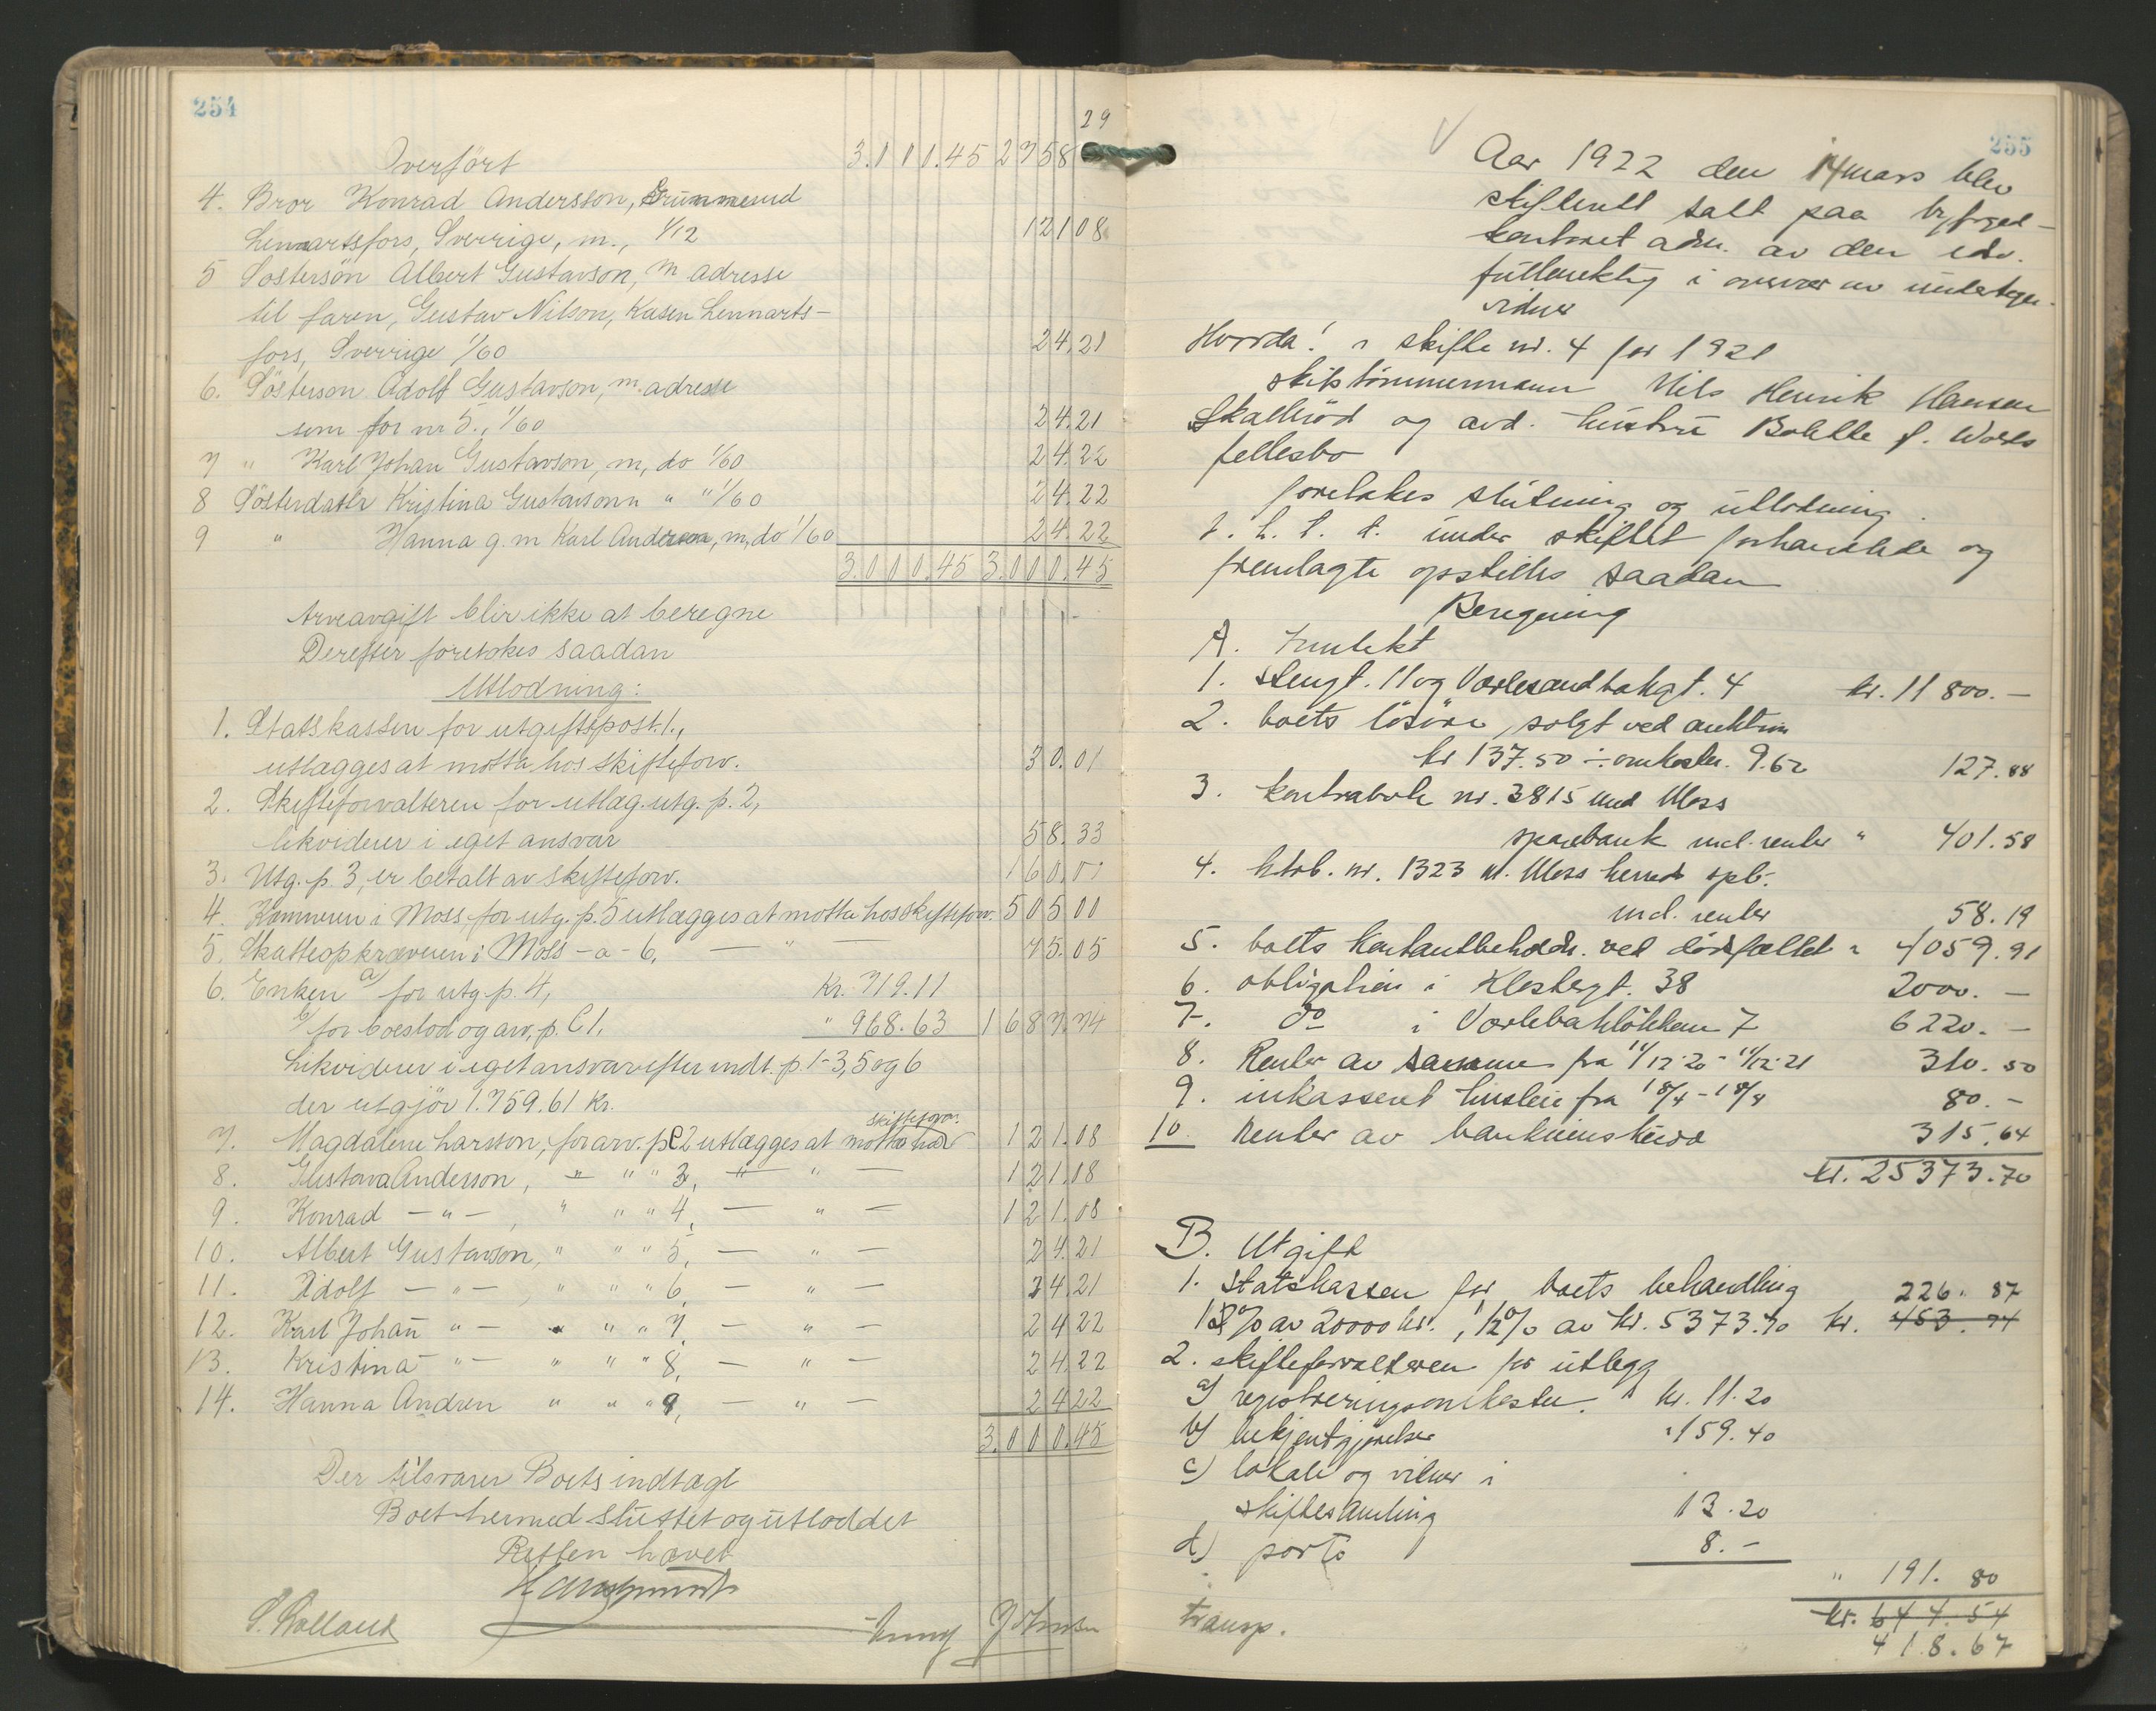 254
29
Overført 3.000.45 2758
4. Bror Konrad Andersson, Grummesrud
Lennartsfors, Sverrige, m., 1/12 121 08
5 Søstersøn Albert Gustavson, m adresse
til faren, Gustav Nilson, Kasen Lennarts-
fors, Sverrige 1/60 24.21
6. Søsterson Adolf Gustavson, m. adresse
som for nr 5., 1/60 24.21
7 " Karl Johan Gustavson, m, do 1/60 24.22
8 Søsterdatter Kristina Gustavsonn " " 1/60 24.22
9 " Hanna g. m Karl Andersson, m, do 1/60 24.22
3.000.45 3.000.45
Arveavgift blir ikke at beregne
Derefter foretokes saadan
Utlodning:
1. Statskassen for utgiftspost 1.,
utlægges at motta hos skifteforv. 30.01
2. Skifteforvalteren for utlæg. utg. p. 2,
likviderer i eget ansvar 58.33
3. Utg. p 3, er betalt av skifteforv. 160.00
4. Kæmneren i Moss, for utg. p. 5 utlægges at motta hos skifteforv. 505 00
5. Skatteopkræveren i Moss - a - 6, — " — 75.05
6. Enken a) for utg. p. 4, Kr. 719.11
b) for boeslod og arv, p. C 1. " 968.63 1687.74
Likviderer i eget ansvar efter indt. p. 1-3, 5 og 6
der utgjør 1.759.61 Kr.
skifteforv.
7. Magdalene Larsson, for arv. p C 2 utlægges at motta hos 121.08
8. Gustava Andersson, — " " 3, — " — 121.08
9. Konrad — " — , " " " 4, — " — 121.08
10. Albert Gustavson, " " " 5, — " — 24.21
11. Adolf — " — , " " " 6, — " — 24.21
12. Karl Johan " — " " " 7, — " — 24 22
13. Kristina " — " " " 8, — " — 24.22
14. Hanna Andren " " " 9, — " — 24 22
3.000.45
Der tilsvarer Boets indtægt
Boet hermed sluttet og utloddet
Retten hævet
255
Aar 1922 den 14 mars blev
skifterett satt paa byfoged-
kontoret adm. av den edsv.
fullmektig i overvær av undertegn.
vidner
Hvorda! i skifte nr. 4 for 1921
skibstømmermann Nils Henrik Hansen
Skallerød og avd. hustru Bolette f. Wolds
fellesbo
foretokes slutning og utlodning.
I. h. t. d. under skiftet forhandlede og
fremlagte opstilles saadan
Beregning
A. Inntekt
1. Stengt. 11 og Vorlesandbakgt. 4 kr. 11 800. —
2. boets løsøre, solgt ved auktion
kr 137.50 ÷ omkostn. 9.62 127.88
3. kontrabok nr. 3815 med Moss
sparebank incl. renter " 401.58
4. ktrb. nr. 1323 m. Moss herreds spb.
incl. renter 58.19
5. boets kontantbeholdn. ved dødsfallet " 4059.91
6. obligation i Klostergt. 38 2000. —
7. do i Vorlebakløkken 7 6220. —
8. Renter av samme fra 11/12-20 - 11/12-21 310.50
9. inkasseret husleie fra 18/4 - 18/8 80. —
10. Renter av bankinnskudd 315.64
kr. 25373.70
B. Utgift
1. Statskassen for boets behandling 226. 87
1% av 20000 kr., 1/2% av kr. 5373.70 kr. 453.74
2. skifteforvalteren for utlegg
a) registreringsomkostn. kr. 11.20
b) bekjentgjørelser " 159.40
c) lokale og vidner i
skiftesamling 13.20
d) porto 8. —
" 191. 80
transp. kr. 644.54
418.67